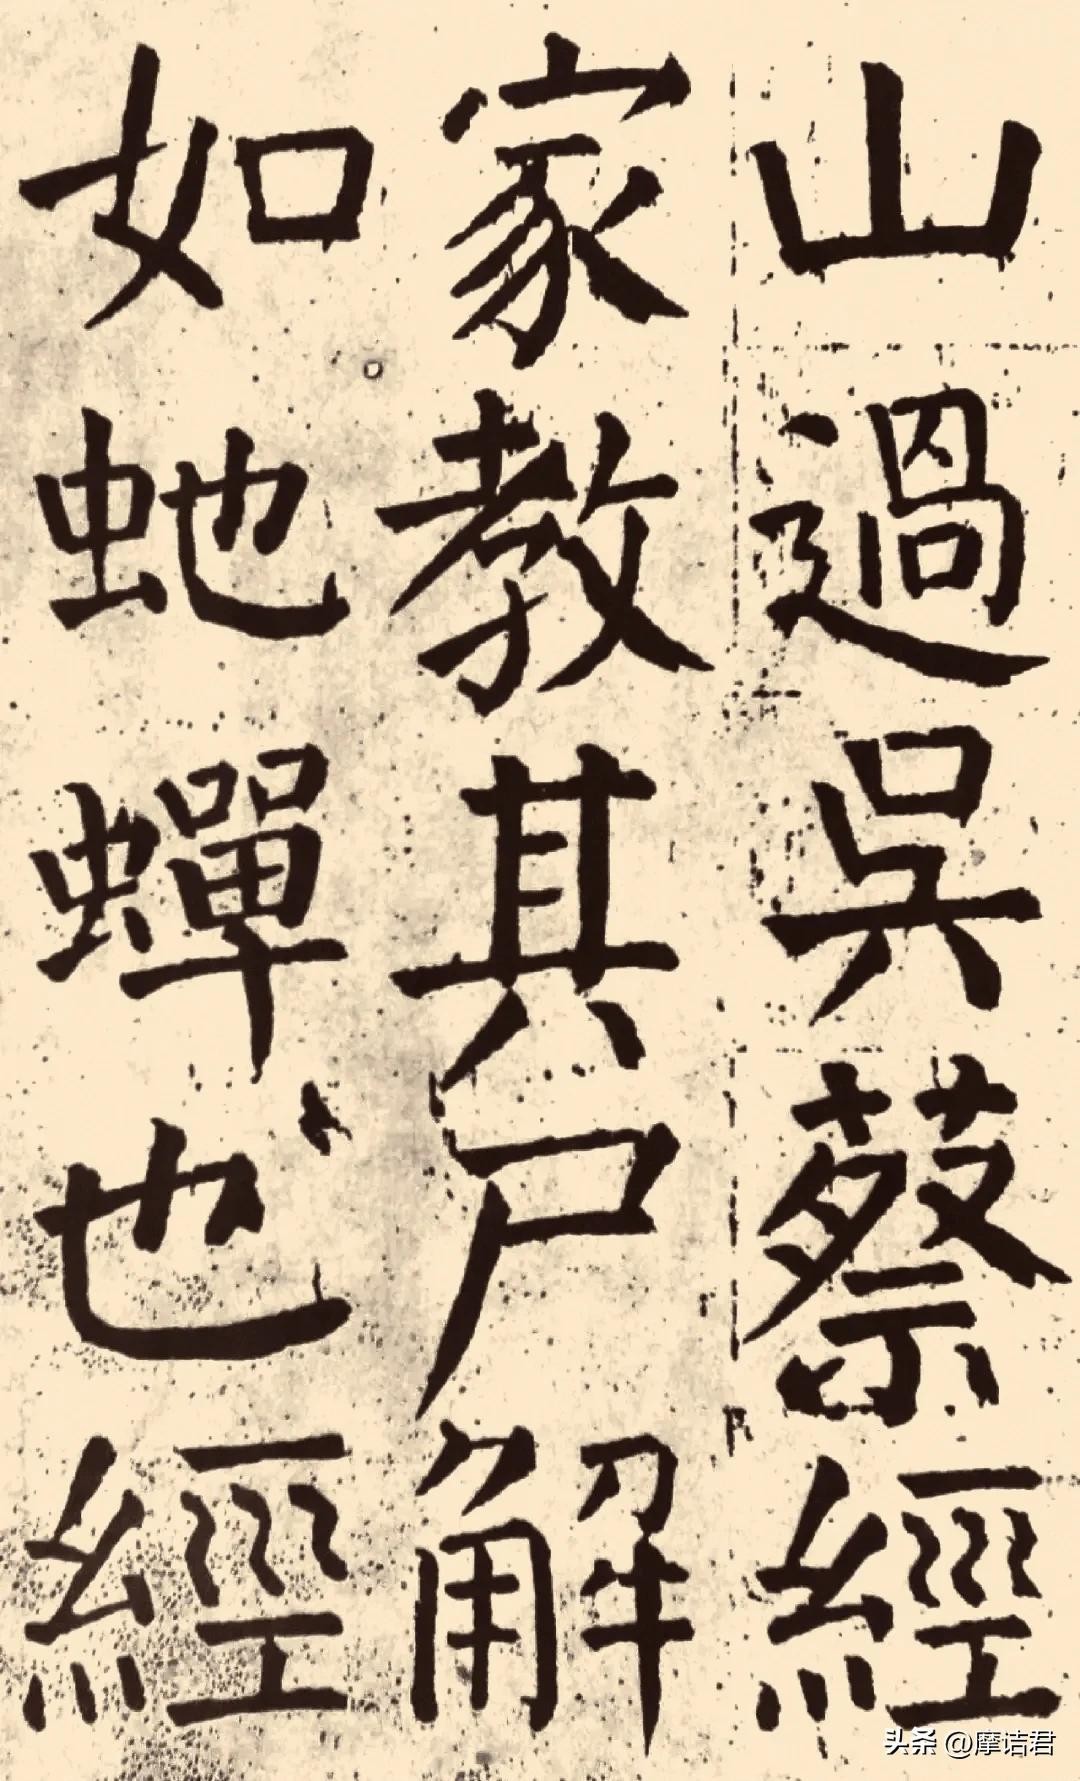 山過吳蔡經
家教其尸解
如虵蟬也經
头条 @摩诘君